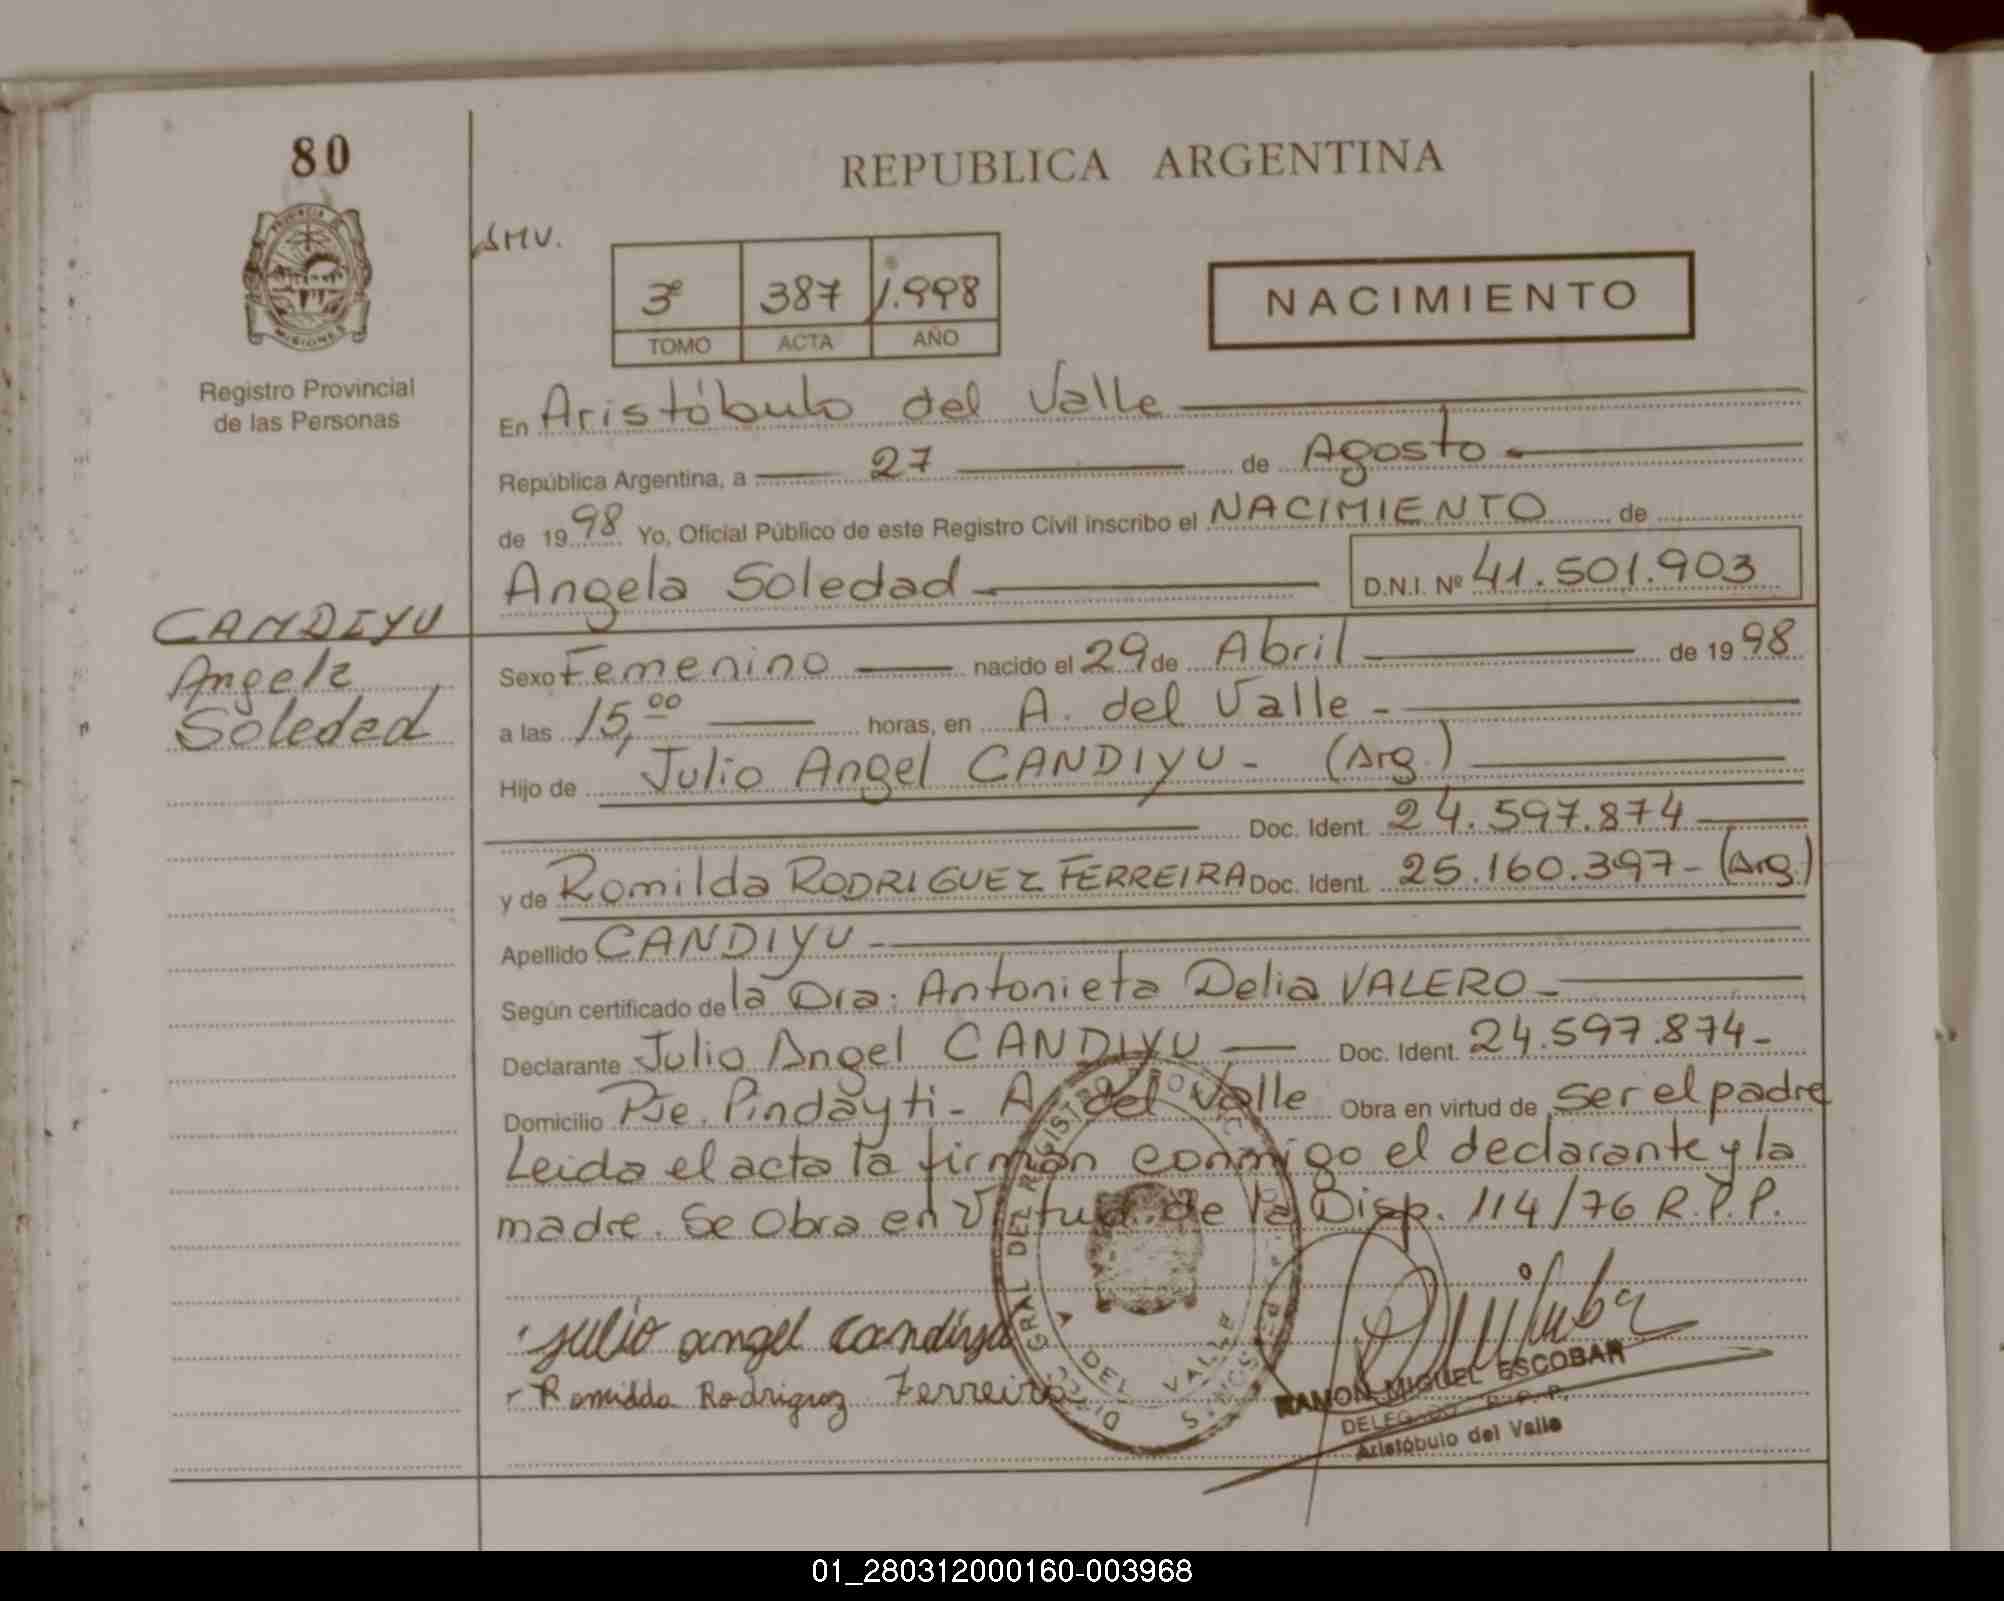 80
REPUBLICA ARGENTINA
PROVINCIA DE
MISIONES
Registro Provincial
de las Personas
SMV.
3º 387 1.998
TOMO ACTA AÑO
NACIMIENTO
En Aristóbulo del Valle
República Argentina, a 27 de Agosto
de 1998 Yo, Oficial Público de este Registro Civil inscribo el NACIMIENTO de
Angela Soledad D.N.I. Nº 41.501.903
CANDIYU
Angela
Soledad
Sexo Femenino nacido el 29 de Abril de 1998
a las 15,00 horas, en A. del Valle -
Hijo de Julio Angel CANDIYU - (Arg.)
Doc. Ident. 24.597.874
y de Romilda RODRIGUEZ FERREIRA Doc. Ident. 25.160.397 - (Arg.)
Apellido CANDIYU
Según certificado de la Dra: Antonieta Delia VALERO -
Declarante Julio Angel CANDIYU Doc. Ident. 24.597.874 -
Domicilio Pje. Pindayti - A. del Valle Obra en virtud de ser el padre
Leida el acta la firman conmigo el declarante y la
madre. Se Obra en Virtud de la Disp. 114/76 R.P.P.
Julio angel Candiyu
Romilda Rodriguez Ferreira
GRAL DEL REGISTRO
DEL VALLE
RAMON MIGUEL ESCOBAR
DELEGADO R.P.P.
Aristóbulo del Valle
01_280312000160-003968